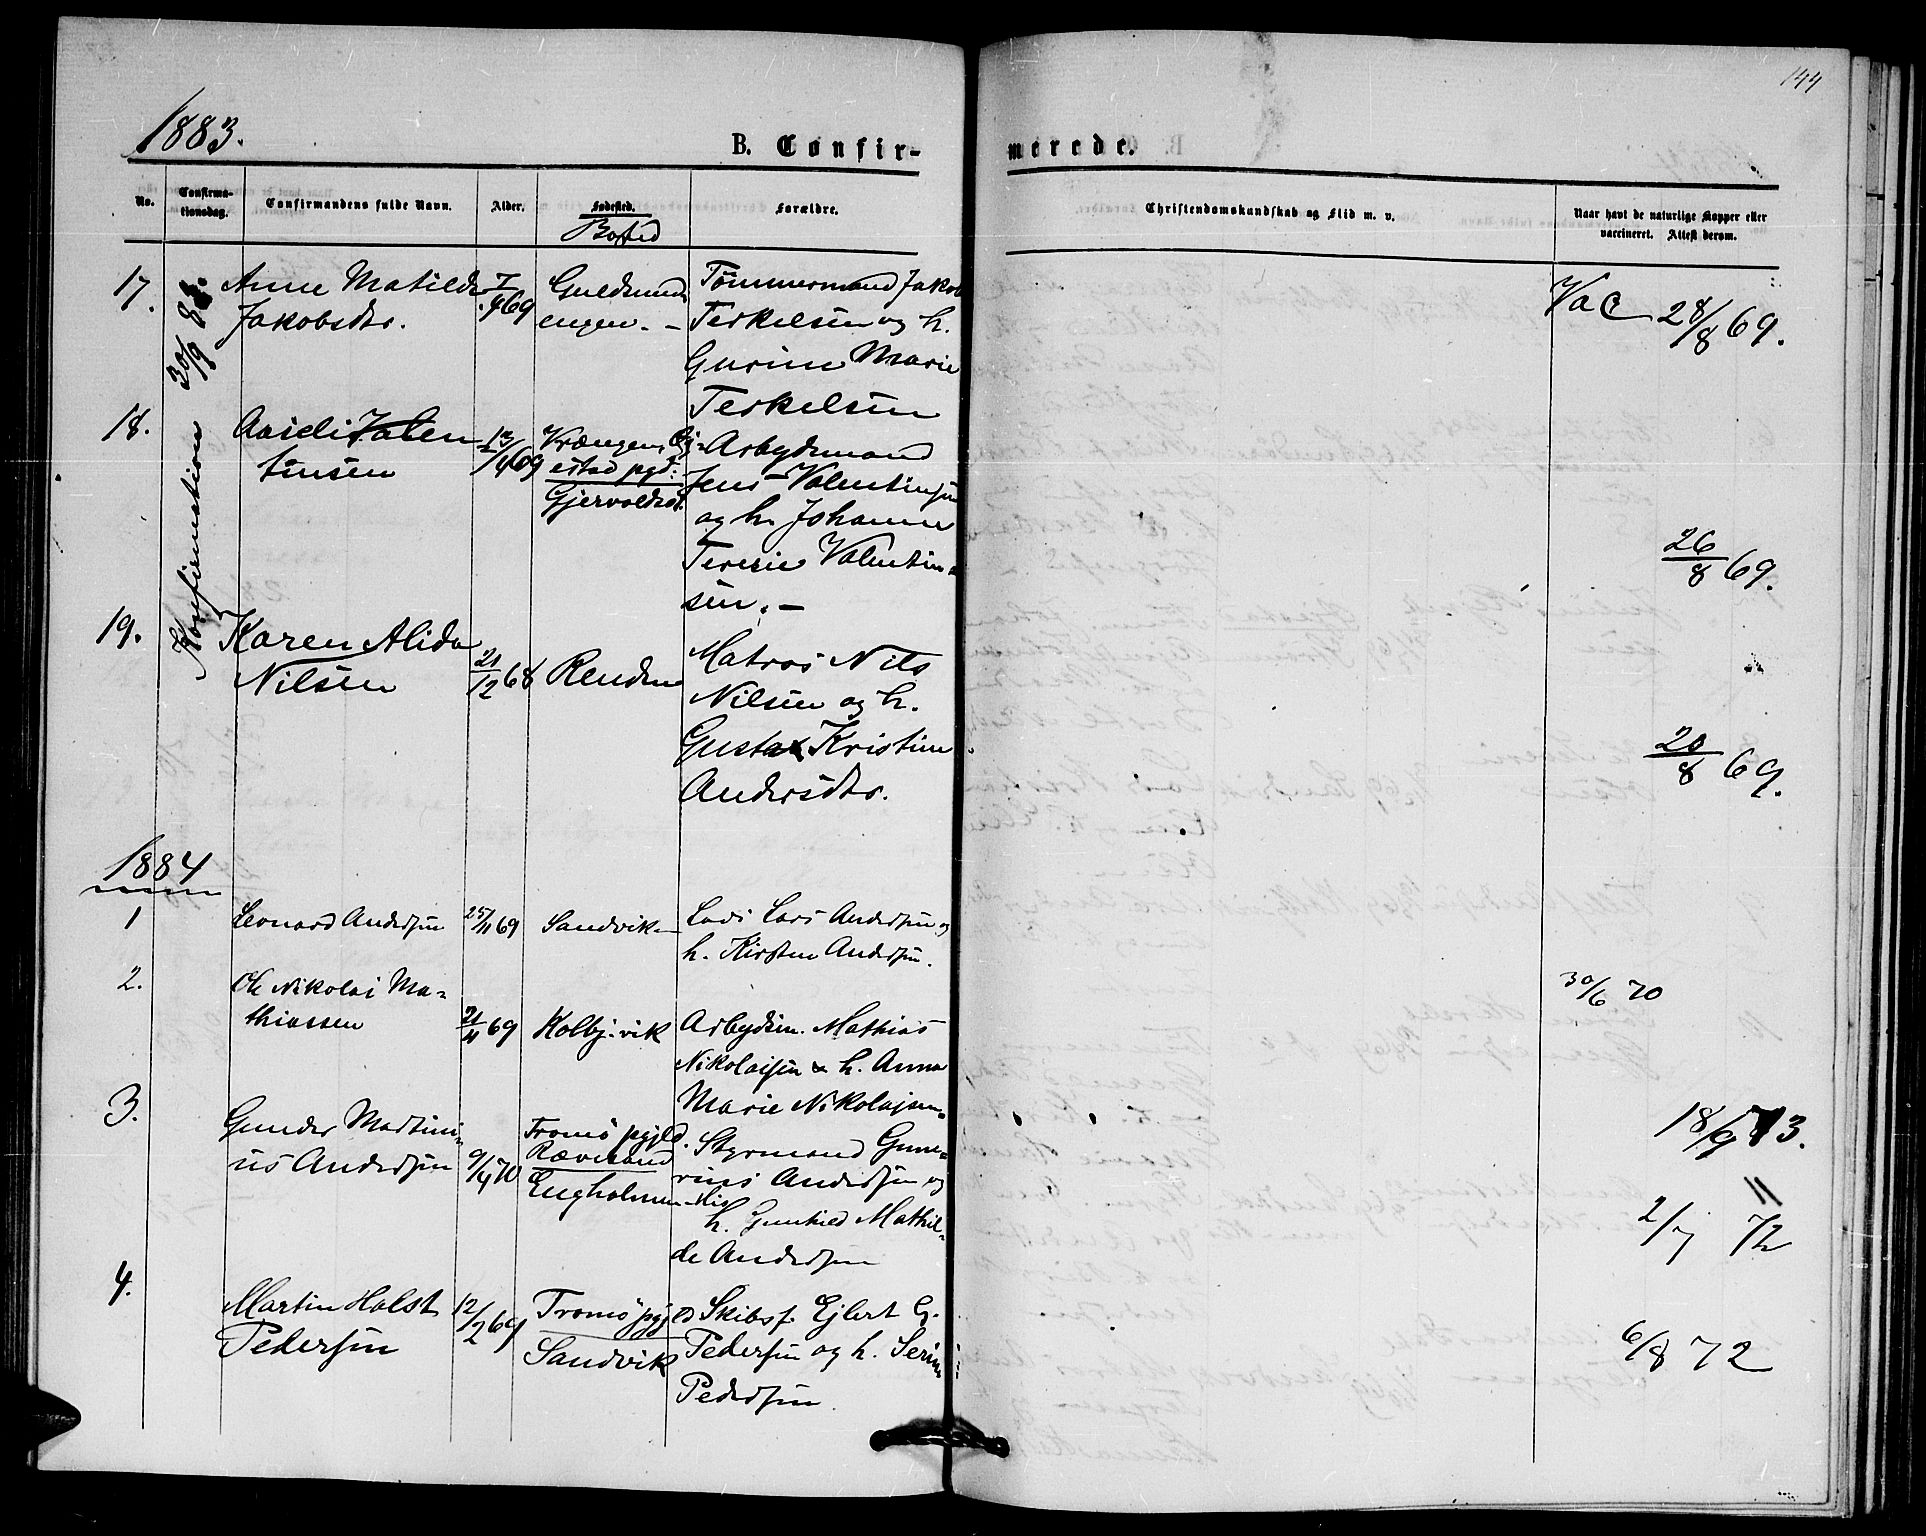 144
1883.
B. Confir-
merede.
No.
Confirma-
tionsdag.
Confirmandens fulde Navn.
Alder.
Fødested.
Bosted
Forældre.
Christendomskundskab og Flid m. v.
Naar havt de naturlige Kopper eller
vaccineret. Attest derom.
Konfirmation 30/9 83.
17.
Anne Matilde
Jakobsdtr.
7/4 69
engen. -
Tømmermand Jakob
Terkelsen og h.
Gurine Marie
Terkelsen
Vac 28/8 69.
18.
Valen
tinsen
13/4 69
estad pgd:
Gjervoldsø.
Arbydsmand
Jens Valentinsen
og h. Johanne
Teresie Valentin-
sen. -
26/8 69.
19.
Karen Alida
Nilsen
21/12 68
Renden
Matros Nils
Nilsen og h.
Gustav Kristine
Andersdtr.
20/8 69.
1884
1
Leonard Andersen
25/11 69
Sandvik
Lods Lars Andersen og
h. Kirsten Andersen.
2.
Nikolai Ma-
thiassen
21/11 69
Kolbj.vik
Arbydsm. Mathias
Nikolaisen & h. Anna
Marie Nikolajsen.
30/6 70
3.
Gunder Martini-
us Andersen
9/4 70
Tromø pgjld.
Rævesand
Engholmen
Styrmand Gune-
rius Andersen og
h. Gunhild Mathil-
de Andersen
18/9 73.
2/7 72
4.
Martin Holst
Pedersen
12/2 69
Tromø pgj
Sandvik
Skibsf. Ejlert G.
Pedersen og h. Serine
Pedersen.
6/8 72